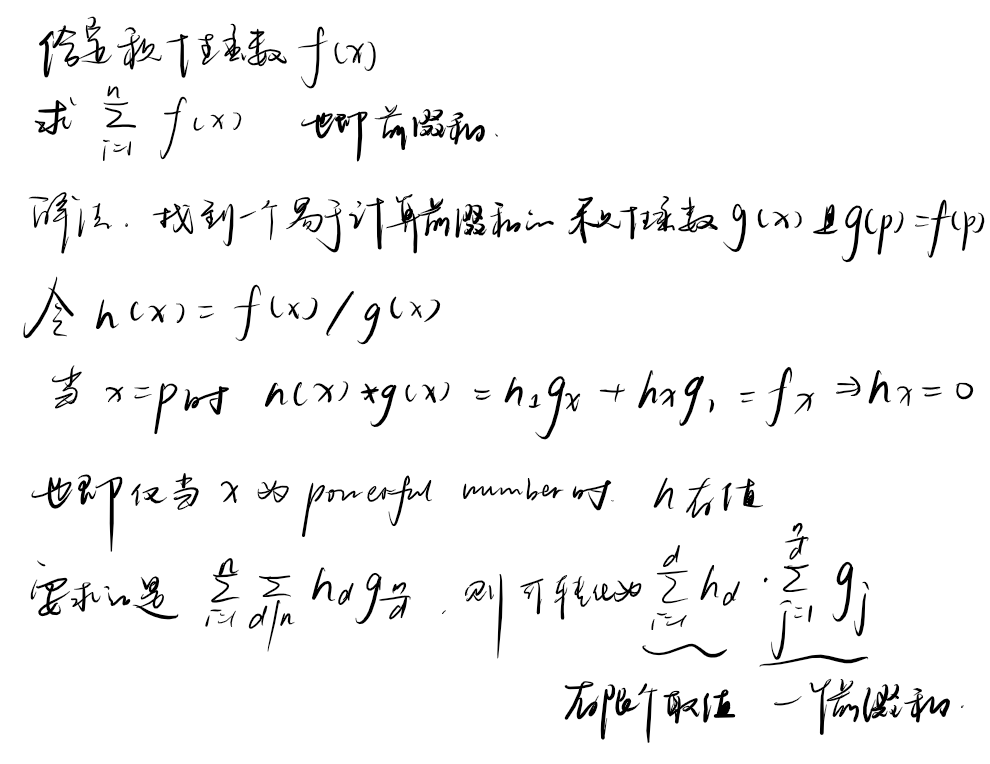 给定积性函数 f(x)
求 \sum_{i=1}^{n} f(x) 也即前缀和.
解法. 找到一个易于计算前缀和的积性函数 g(x) 且 g(p)=f(p)
令 h(x) = f(x) / g(x)
当 x=p 时 h(x)*g(x) = h_1 g_x + h_x g_1 = f_x ⇒ h_x = 0
也即仅当 x 为 powerful number 时. h 有值
要求的是 \sum_{i=1}^{n} \sum_{d|n} h_d g_{\frac{n}{d}} . 则可转化为 \sum_{i=1}^{d} h_d · \sum_{j=1}^{\frac{n}{d}} g_j
有限个取值 一个前缀和.